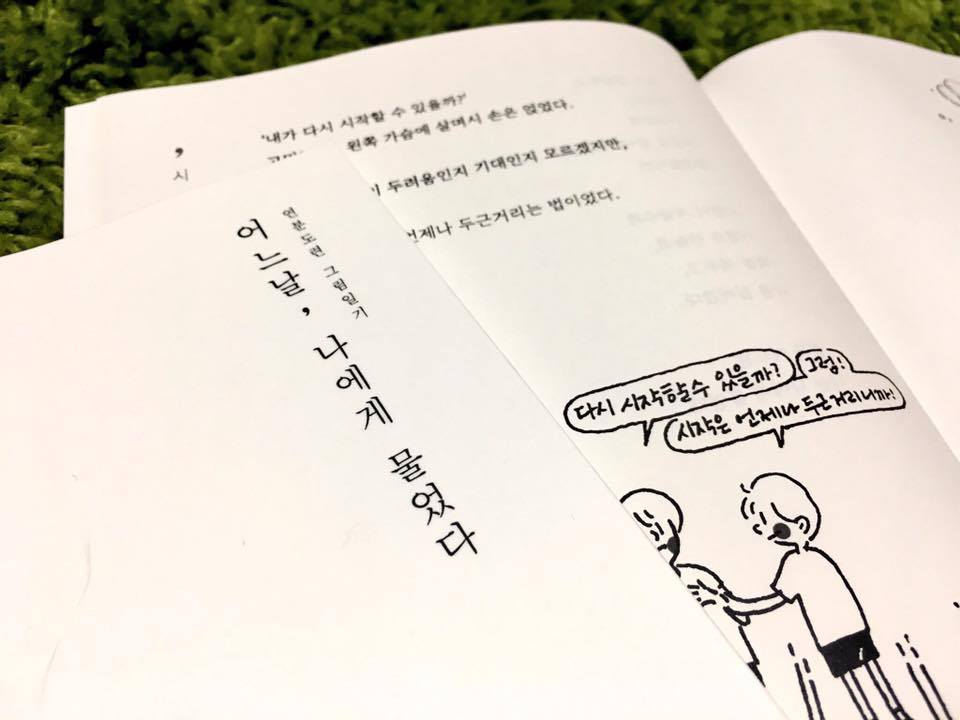 '내가 다시 시작할 수 있을까?'
왼쪽 가슴에 살며시 손은 얹었다.
두려움인지 기대인지 모르겠지만,
언제나 두근거리는 법이었다.
,
시
연분도련 그림일기
어느날, 나에게 물었다
다시 시작할수 있을까?
그럼!
시작은 언제나 두근거리니까!